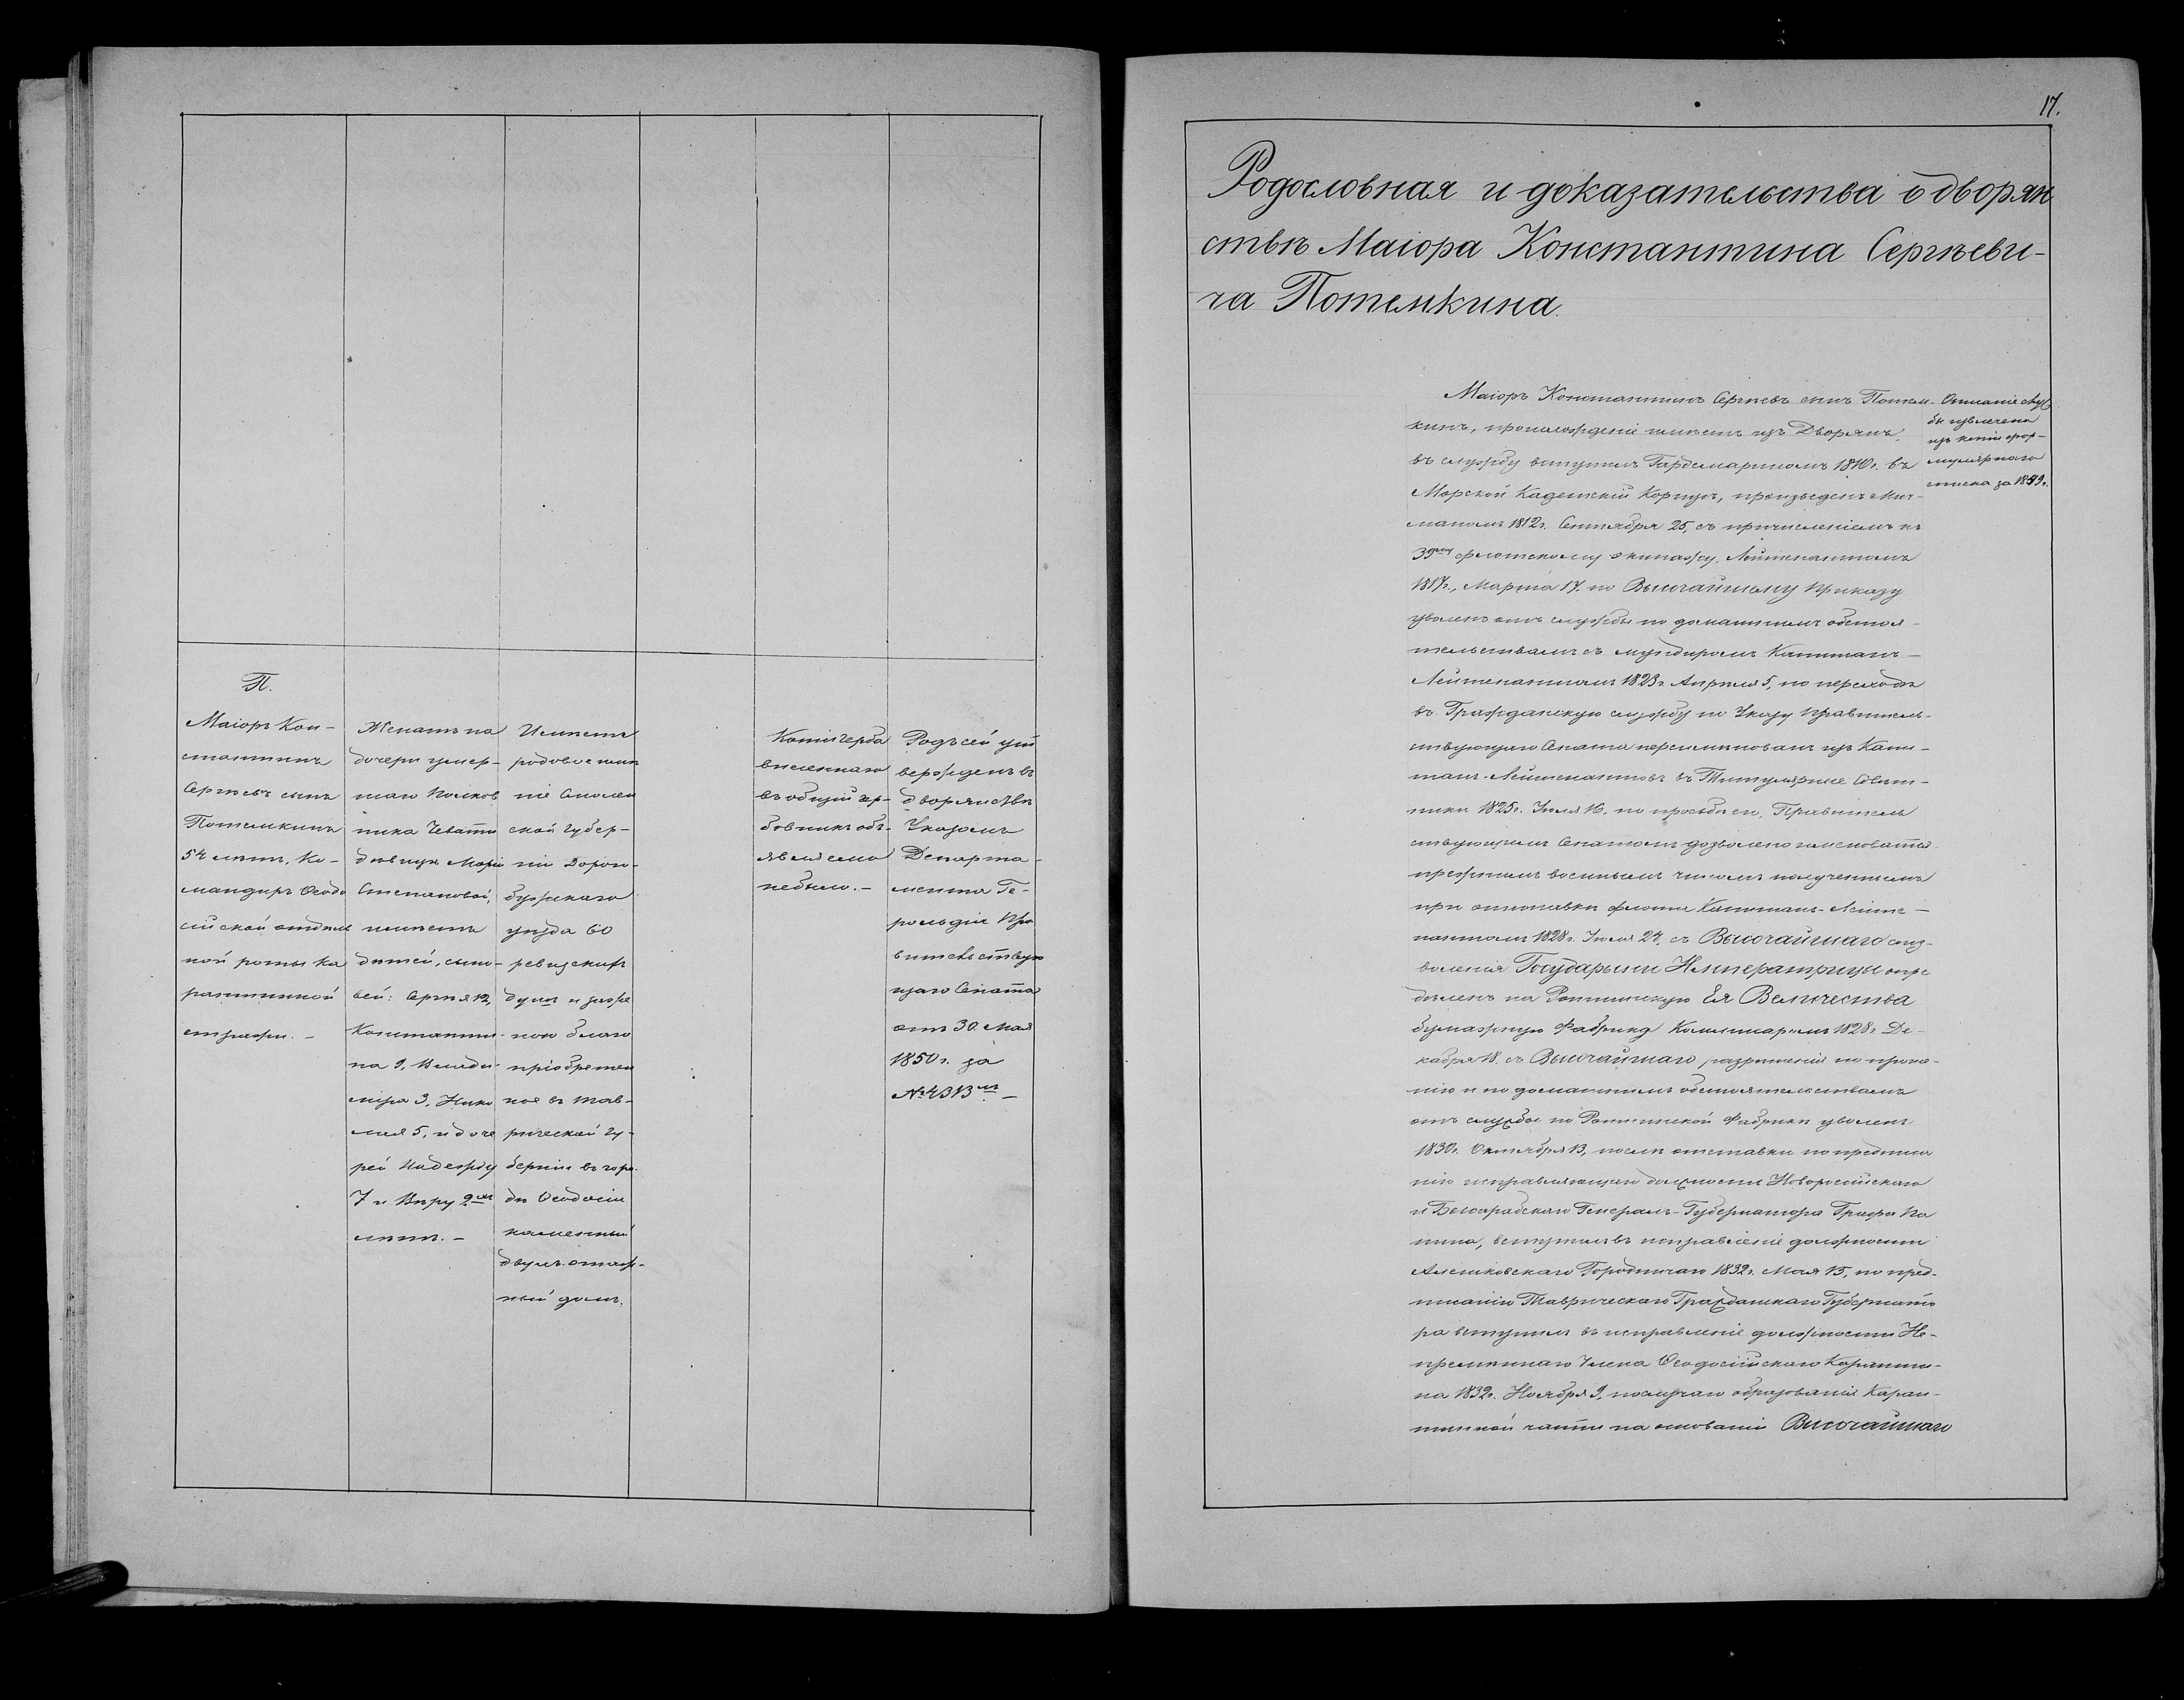 П.
Маіоръ Кон-
стантинъ
Сергѣевъ сынъ
Потемкинъ
54 лѣтъ, Ко-
мандиръ Ѳеодо
сійской отдѣль
ной роты Ка
рантинной
стражи. –
Женатъ на
дочери умер-
шаго Полков
ника
Маріи
Степановой,
имѣетъ
дѣтей, сыно-
вей: Сергѣя 12,
Константи-
на 9, Влади-
міра 3, Нико
лая 5, и доче
рей Надежду
7 и Вѣру 9ти
лѣтъ. –
Имѣетъ
родовое имѣ
ніе Смолен
ской Губер-
ніи Дорого-
бужскаго
уѣзда 60
ревизскихъ
душъ и
ною благо
пріобретен
ное въ Тав-
рической Гу-
берніи въ горо-
дѣ Ѳеодосіи
каменный
двухъ-этаж-
ный домъ.
Копіи герба
внесеннаго
въ общій гер-
бовникъ объ-
явлено
небыло. –
Родъ сей утв
вержденъ въ
дворянствѣ
Указомъ
Департа-
мента Ге-
рольдіи Пра
вительствую
щаго Сената
отъ 30. Мая
1850 г. за
№ 4313мъ –
17.
Родословная и доказательства о дворян
ствѣ Маіора Константина Сергѣеви-
ча Потемкина.
Маіоръ Константинъ Сергѣевъ сынъ Потем-
кинъ, происхожденіе имѣетъ изъ Дворянъ,
въ службу вступилъ Гардемариномъ 1810 г. въ
Морской Кадетскій Корпусъ, произведенъ Мич-
маномъ 1812 г. Сентября 25, съ причисленіемъ къ
39му флотскому экипажу, Лейтенантомъ
1817 г., Марта 17. по Высочайшему Приказу
уволенъ отъ службы по домашнимъ обстоя-
тельствамъ съ мундиромъ Капитанъ-
Лейтенантомъ 1823 г. Апрѣля 5, по переходѣ
въ Гражданскую службу по Указу Правитель-
ствующаго Сената переименованъ изъ Капи-
танъ-Лейтенантовъ въ Титулярные Совѣт-
ники 1825 г. Іюля 16. по просьбѣ его, Правитель
ствующимъ Сенатомъ дозволено именоваться
прежнимъ военнымъ чиномъ полученнымъ
при отставкѣ флота Капитанъ-Лейте-
нантомъ 1828 г. Іюля 24, съ Высочайшаго соиз-
воленія Государыни Императрицы опре
дѣленъ на Ропшинскую Ея Величества
бумажную Фабрику Комисаромъ 1828 г. Де-
кабря 18. съ Высочайшаго разрѣшенія по проше-
нію и по домашнимъ обстоятельствамъ
отъ службы по Ропшинской Фабрикѣ уволенъ
1830 г. Октября 13, послѣ отставки по предписа
нію исправляющаго должность Новороссійскаго
и Бессарабскаго Генералъ-Губернатора Графа Па
лена, вступилъ въ исправленіе должности
Алешковскаго Городничаго 1832 г. Мая 15, по пред-
писанію Таврическаго Гражданскаго Губернато
ра вступилъ въ исправленіе должности Не-
премѣннаго Члена Ѳеодосійскаго Каранти-
на 1832 г. Ноября 9, послучаю образованія Каран-
тинной части на основаніи Высочайшаго
Описаніе служ
бы извлечена
изъ копіи фор-
мулярнаго
списка за 1849 г.